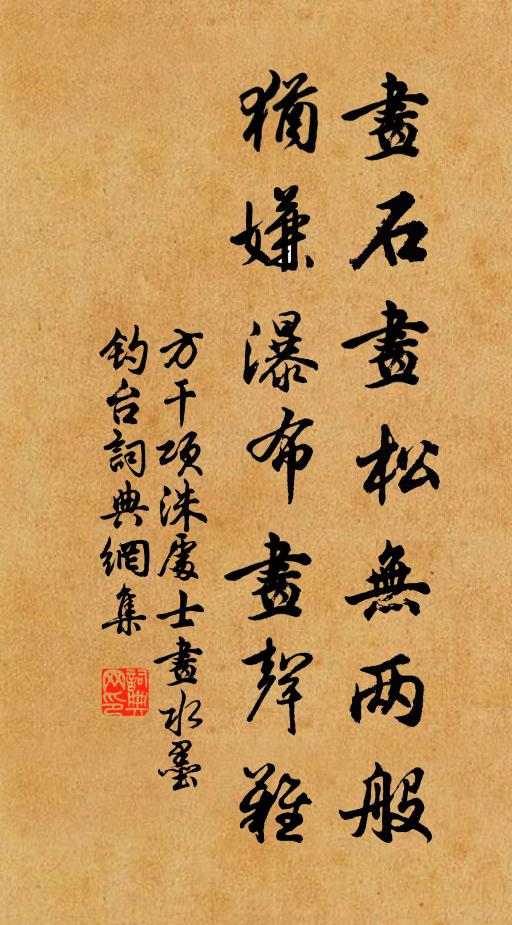 畫石畫松無两般
猶嫌瀑布畫聲難
方干项洙處士畫水墨
钓台詞典網集
詞典
网印